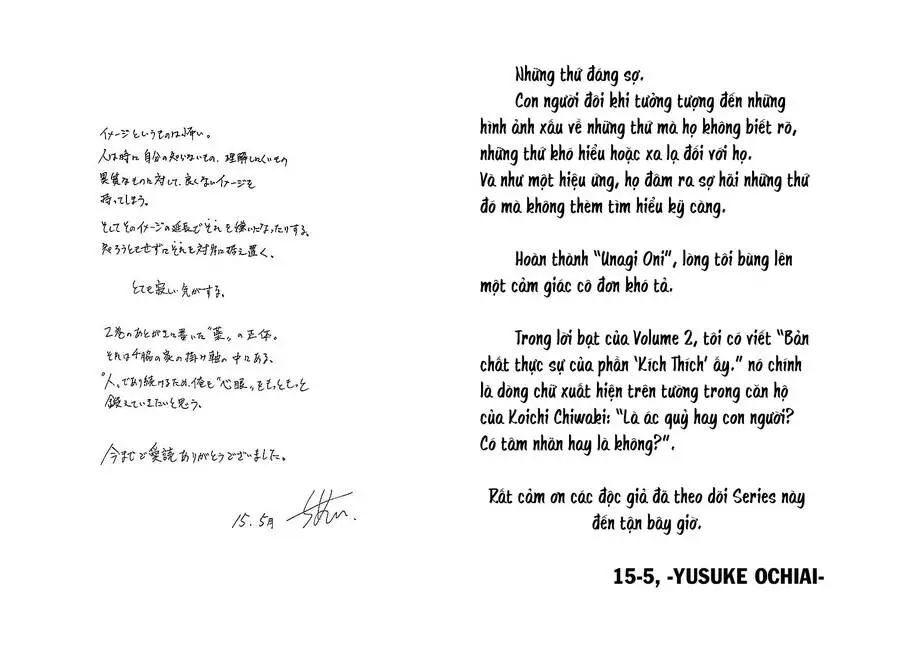 イメージというものは怖い。
人は時に自分の知らないもの、理解しにくいもの
異質なものに対して、良くないイメージを
持ってしまう。
そしてそのイメージの延長でそれを嫌いになったりする。
知ろうとせずにそれを対岸に据え置く。
とても寂しい気がする。
2巻のあとがきに書いた“薬”の正体。
それは千脇の家の掛け軸の中にある。
“人”であり続けるため、俺も“心眼”をもっともっと
鍛えていきたいと思う。
今まで愛読ありがとうございました。
15.5月
Những thứ đáng sợ.
Con người đôi khi tưởng tượng đến những
hình ảnh xấu về những thứ mà họ không biết rõ,
những thứ khó hiểu hoặc xa lạ đối với họ.
Và như một hiệu ứng, họ đâm ra sợ hãi những thứ
đó mà không thèm tìm hiểu kỹ càng.
Hoàn thành “Unagi Oni”, lòng tôi bùng lên
một cảm giác cô đơn khó tả.
Trong lời bạt của Volume 2, tôi có viết “Bản
chất thực sự của phần ‘Kích Thích’ ấy.” nó chính
là dòng chữ xuất hiện trên tường trong căn hộ
của Koichi Chiwaki: “Là ác quỷ hay con người?
Có tâm nhãn hay là không?”.
Rất cảm ơn các độc giả đã theo dõi Series này
đến tận bây giờ.
15-5, -YUSUKE OCHIAI-